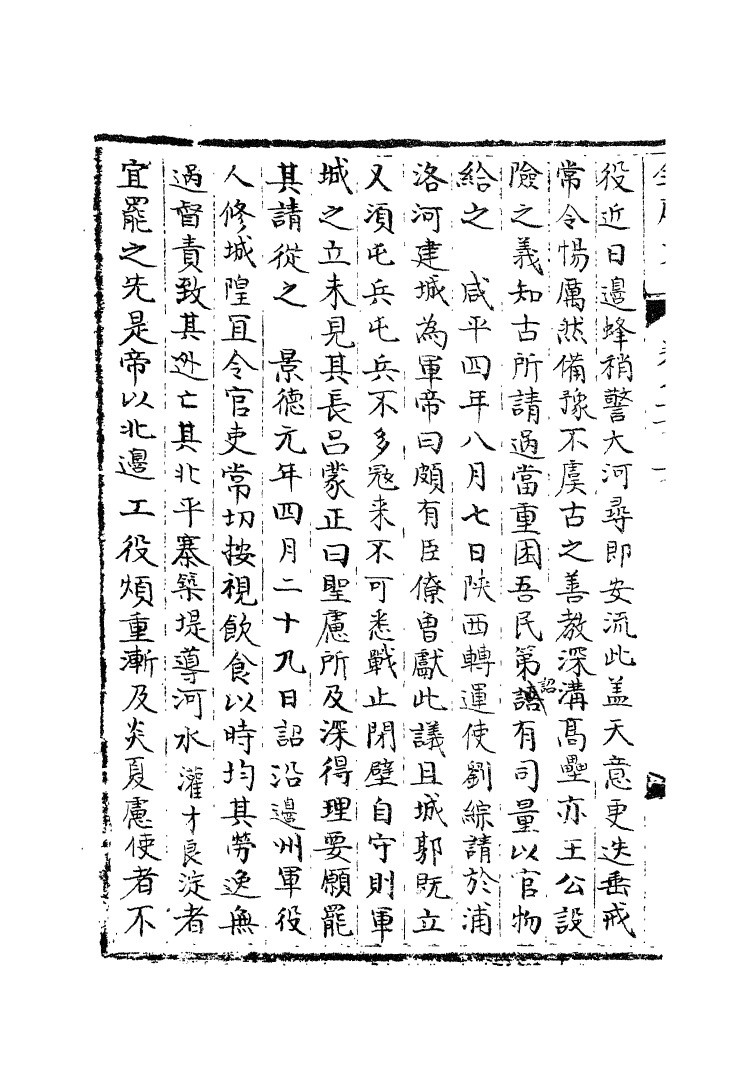 役近日邊蜂稍警大河尋即安流此盖天意更迭垂戒
常令惕厲然備豫不虞古之善教深溝髙壘亦王公設
險之義知古所請過當重困吾民第語詔有司量以官物
給之　咸平四年八月七日陜西轉運使劉綜請於浦
洛河建城為軍帝曰頗有臣僚曽獻此議且城郭既立
又湏屯兵屯兵不多冦来不可悉戰止閉壁自守則軍
城之立未見其長吕蒙正曰聖慮所及深得理要願罷
其請從之　景德元年四月二十九日詔沿邊州軍役
人修城隍宜令官吏常切按視飲食以時均其勞逸無
過督責致其逃亡其北平寨築堤導河水灌才良淀者
宜罷之先是帝以北邊工役煩重漸及炎夏慮使者不